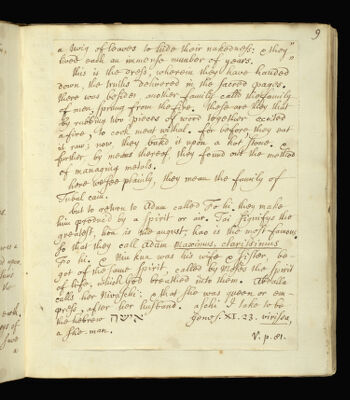 9
a twig of leaves to hide their nakedness: & they
lived each an immense number of years.
this is the dress, wherein they have handed
down, the truths delivered in the sacred pages.
there was besides another family calld the family
of men, sprung from the fire. these are they that
by rubbing two pieces of wood together excited
a fire, to cook meat withal. for before they eat
it raw; now, they bake it upon a hot stone. &
further by means thereof, they found out the method
of managing metals.
here we see plainly, they mean the family of
Tubal cain.
but to return to Adam called Fo hi, they make
him produc'd by a spirit or air. Tai signifys the
greatest, hoa is the august, hao is the most famous.
so that they call adam maximus, clarissimus
Fo hi. & Niu kua was his wife & sister, be-
got of the same spirit, called by Moses the spirit
of life, which God breathed into them.
calls her Nivaschi: & that she was queen or em-
press, after her husband. aschi I take to be
the hebrew אישה genes. XI. 23. virissa,
a she-man.
V. p. 81.